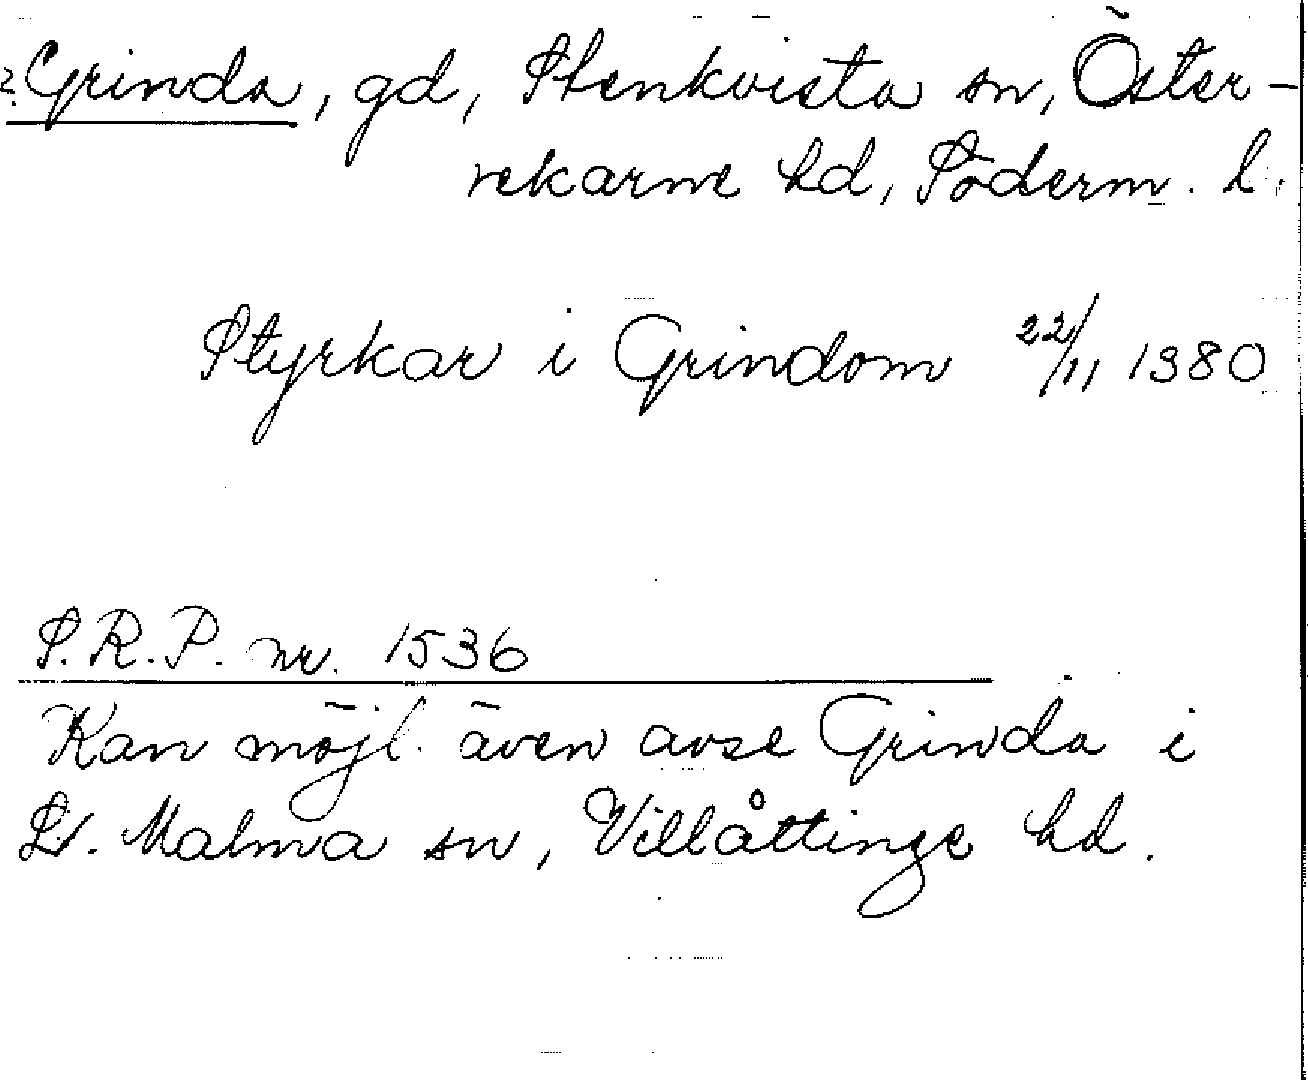 ? Grinda, gd, Stenkvista sn, Öster-
rekarne hd, Söderm. l.
Styrkar i Grindom 22/11 1380
S.R.P. nr. 1536
Kan möjl. även avse Grinda i
St. Malma sn, Villåttinge hd.